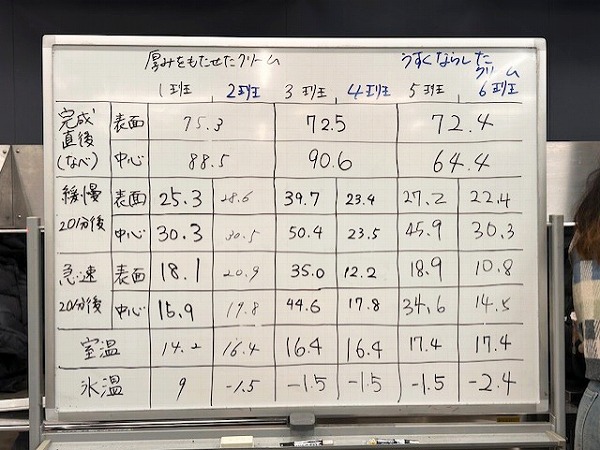 厚みをもたせたクリーム うすくならした
クリーム
1班 2班 3班 4班 5班 6班
完成直後(なべ) 表面 75.3 72.5 72.4
中心 88.5 90.6 64.4
緩慢20分後 表面 25.3 28.6 39.7 23.9 27.2 22.4
中心 30.3 30.5 50.4 23.5 45.9 30.3
急速20分後 表面 18.1 20.9 35.0 12.2 18.9 10.8
中心 15.9 19.8 44.6 17.8 34.6 14.5
室温 14.2 16.4 16.4 16.4 17.4 17.4
氷温 9 -1.5 -1.5 -1.5 -1.5 -2.4